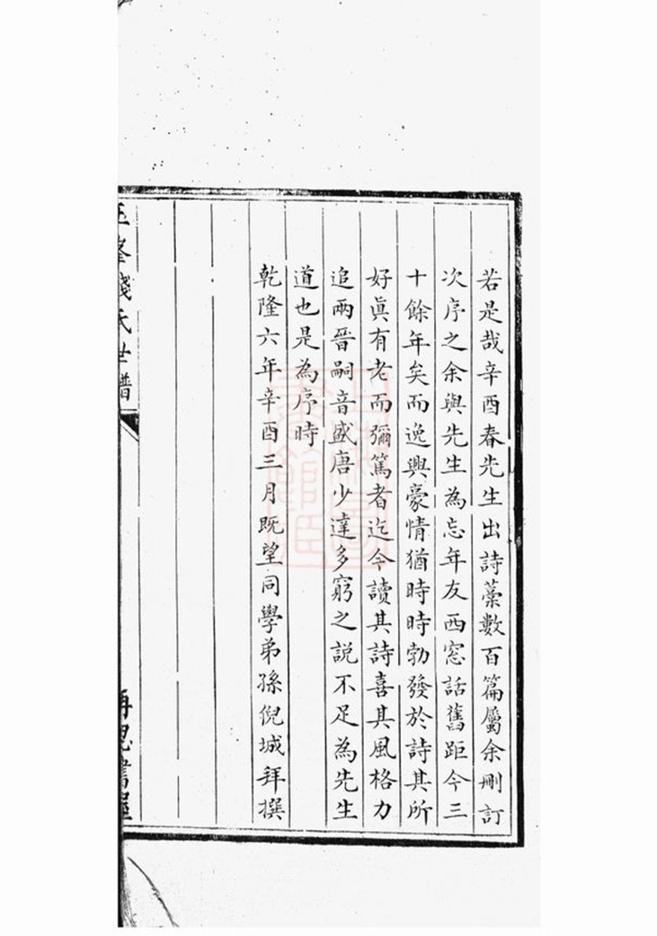 若是哉辛酉春先生出詩藁數百篇屬余刪訂
次序之余與先生為忘年友西窓話舊距今三
十餘年矣而逸興豪情猶時時勃發於詩其所
好眞有老而彌篤者迄今讀其詩喜其風格力
追兩晉嗣音盛唐少達多窮之說不足為先生
道也是為序時
乾隆六年辛酉三月旣望同學弟孫倪城拜撰
峯錢氏世譜
再思書屋